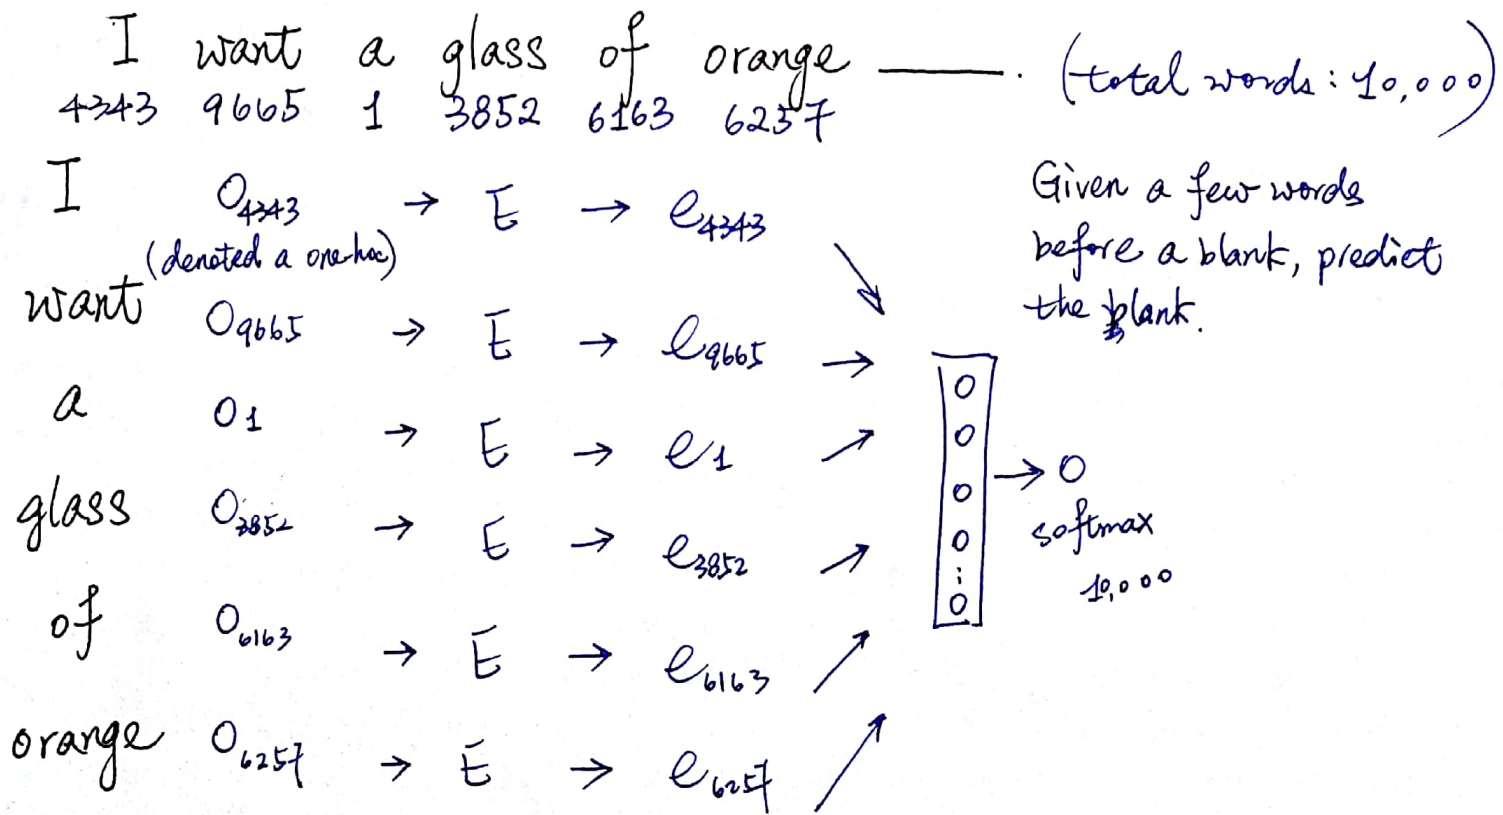 I want a glass of orange ——— . (total words: 10,000)
4343 9665 1 3852 6163 6257
Given a few words
before a blank, predict
the blank.
I O4343 → E → e4343
(denoted a one-hoc)
want O9665 → E → e9665
a O1 → E → e1
glass O3852 → E → e3852
of O6163 → E → e6163
orange O6257 → E → e6257
→ O
softmax
10,000